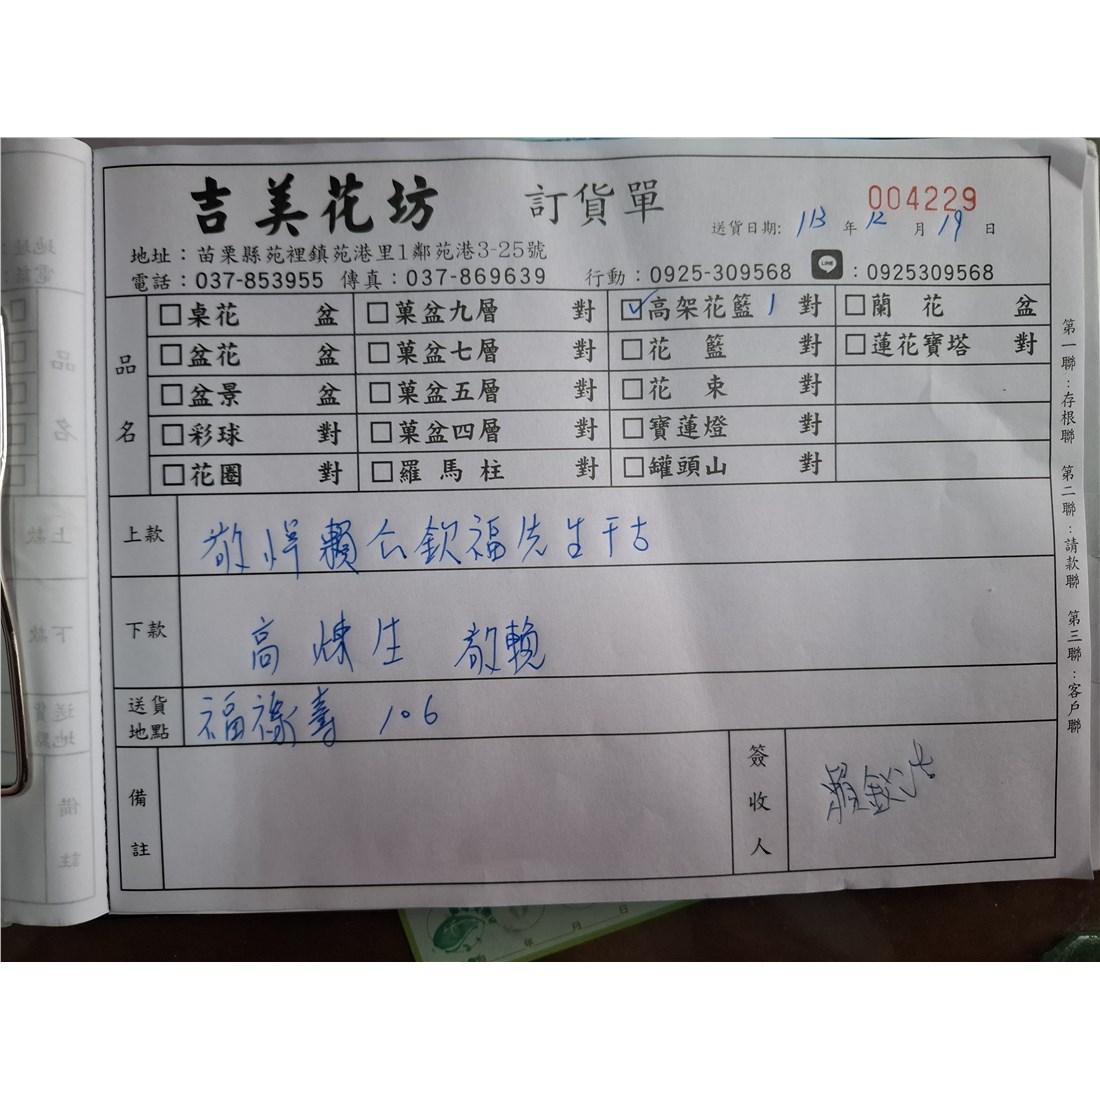 吉美花坊 訂貨單 004229
送貨日期: 113 年 12 月 19 日
地址：苗栗縣苑裡鎮苑港里1鄰苑港3-25號
電話：037-853955 傳真：037-869639 行動：0925-309568 LINE：0925309568
品名
□桌花 盆 □菓盆九層 對 ☑高架花籃 1 對 □蘭花 盆
□盆花 盆 □菓盆七層 對 □花籃 對 □蓮花寶塔 對
□盆景 盆 □菓盆五層 對 □花束 對
□彩球 對 □菓盆四層 對 □寶蓮燈 對
□花圈 對 □羅馬柱 對 □罐頭山 對
上款 敬悼賴公欽福先生千古
下款 高煉生 敬輓
送貨地點 福祿壽 106
備註
簽收人 賴欽
第一聯：存根聯 第二聯：請款聯 第三聯：客戶聯
品名
上款
下款
送貨
地點
備註
年 月 日